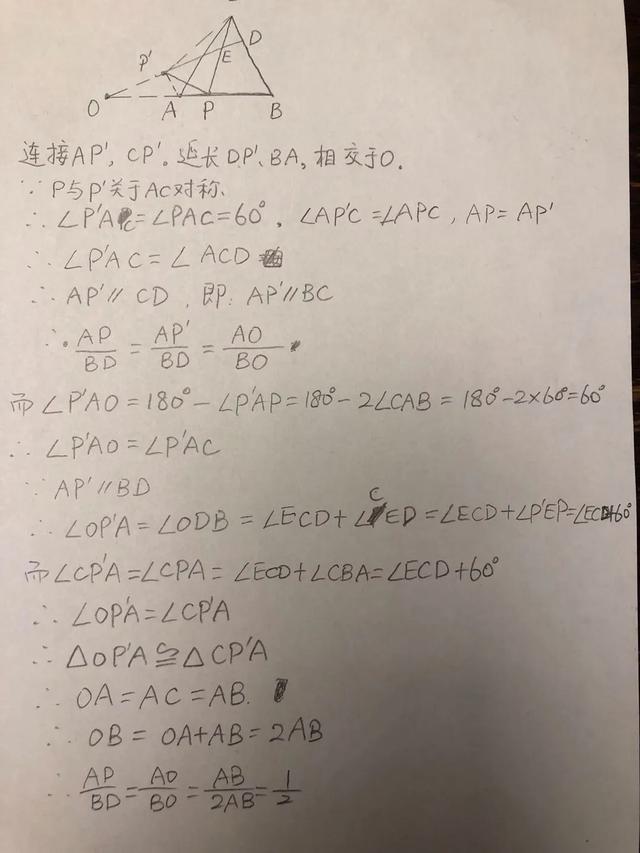 P'
D
E
O
A
P
B
连接AP', CP'。延长DP'、BA, 相交于O.
∵ P与P'关于AC对称、
∴ ∠P'AC=∠PAC=60°, ∠AP'C=∠APC, AP=AP'
∴ ∠P'AC=∠ACD
∴ AP'∥CD, 即: AP'∥BC
∴ AP/BD = AP'/BD = AO/BO
而∠P'AO=180°-∠P'AP=180°-2∠CAB=180°-2×60°=60°
∴ ∠P'AO=∠P'AC
∵ AP'∥BD
∴ ∠OP'A=∠ODB=∠ECD+∠CED=∠ECD+∠P'EP=∠ECD+60°
而∠CP'A=∠CPA=∠ECD+∠CBA=∠ECD+60°
∴ ∠OP'A=∠CP'A
∴ △OP'A≌△CP'A
∴ OA=AC=AB.
∴ OB=OA+AB=2AB
∴ AP/BD=AO/BO=AB/2AB=1/2